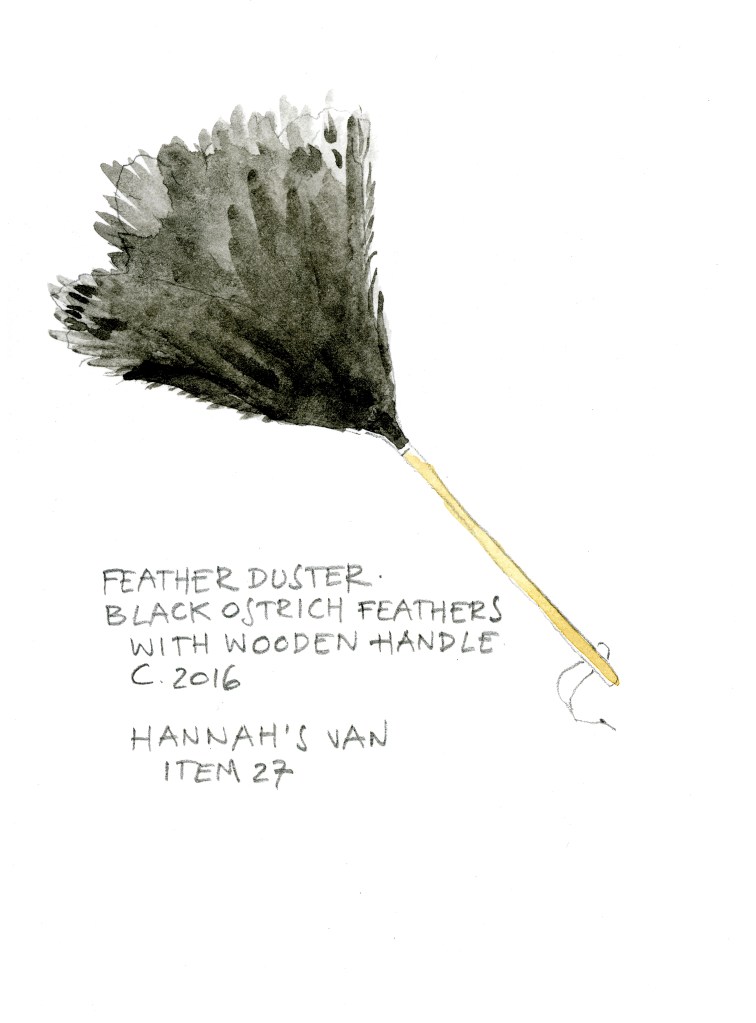 FEATHER DUSTER.
BLACK OSTRICH FEATHERS
WITH WOODEN HANDLE
C. 2016
HANNAH'S VAN
ITEM 27